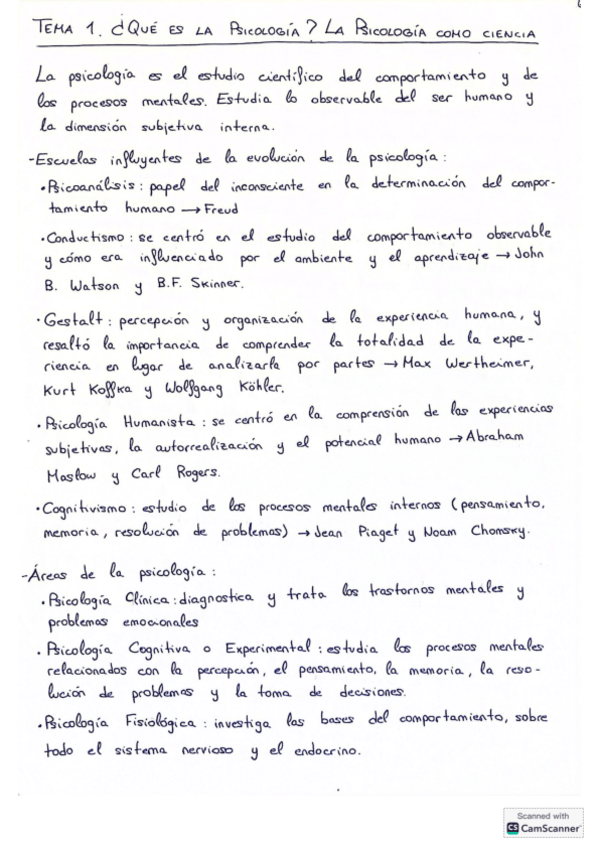 TEMA 1. ¿QUÉ ES LA PSICOLOGÍA? LA PSICOLOGÍA COMO CIENCIA
La psicología es el estudio científico del comportamiento y de
los procesos mentales. Estudia lo observable del ser humano y
la dimensión subjetiva interna.
-Escuelas influyentes de la evolución de la psicología:
•Psicoanálisis: papel del inconsciente en la determinación del compor-
tamiento humano → Freud
•Conductismo: se centró en el estudio del comportamiento observable
y cómo era influenciado por el ambiente y el aprendizaje → John
B. Watson y B.F. Skinner.
•Gestalt: percepción y organización de la experiencia humana, y
resaltó la importancia de comprender la totalidad de la expe-
riencia en lugar de analizarla por partes → Max Wertheimer,
Kurt Koffka y Wolfgang Köhler.
•Psicología Humanista: se centró en la comprensión de las experiencias
subjetivas, la autorrealización y el potencial humano → Abraham
Maslow y Carl Rogers.
•Cognitivismo: estudio de los procesos mentales internos (pensamiento,
memoria, resolución de problemas) → Jean Piaget y Noam Chomsky.
-Áreas de la psicología:
•Psicología Clínica: diagnostica y trata los trastornos mentales y
problemas emocionales
•Psicología Cognitiva o Experimental: estudia los procesos mentales
relacionados con la percepción, el pensamiento, la memoria, la reso-
lución de problemas y la toma de decisiones.
•Psicología Fisiológica: investiga las bases del comportamiento, sobre
todo el sistema nervioso y el endocrino.
Scanned with
CS CamScanner